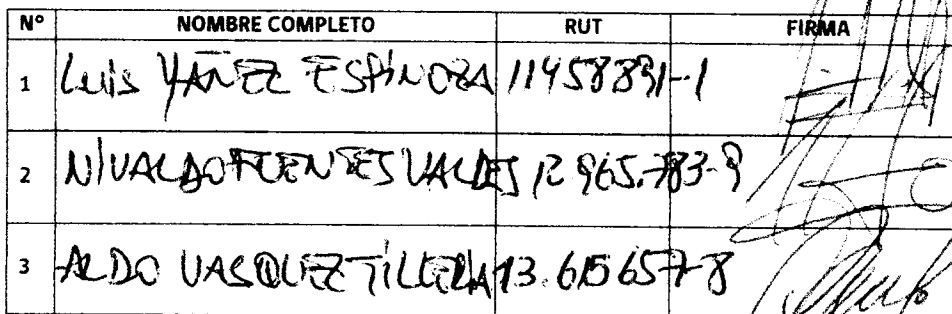 N° NOMBRE COMPLETO RUT FIRMA
1 Luis YAÑEZ ESPINOZA 11458891-1
2 NIVALDO FUENTES VALDES 12.965.783-9
3 ALDO VASQUEZ 13.615657-8